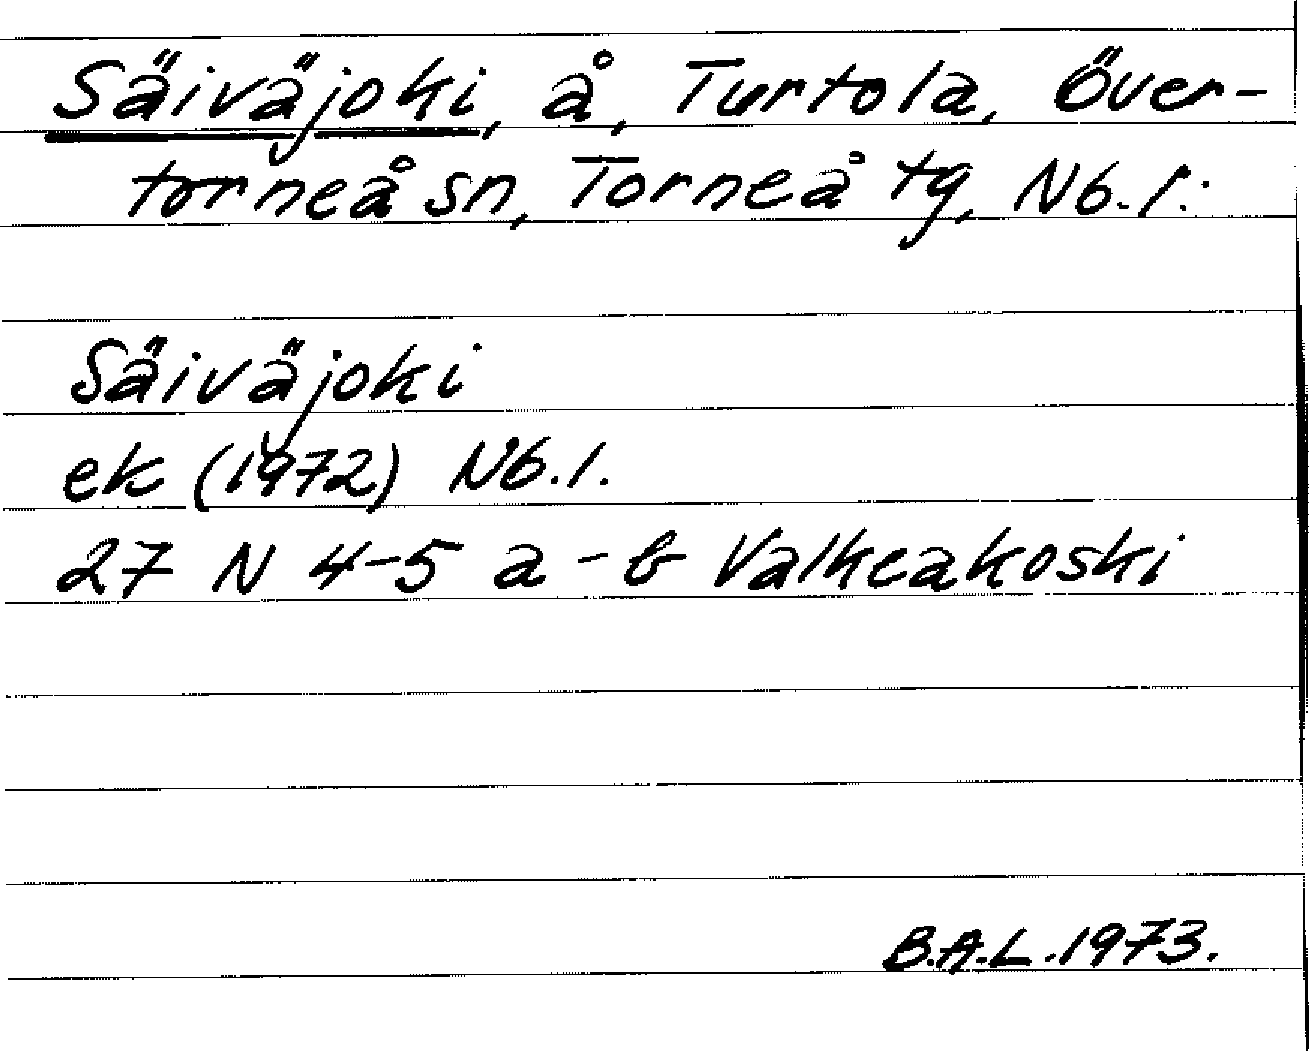 Säiväjoki, å, Turtola, Över-
torneå sn, Torneå tg, Nb.l.
Säiväjoki
ek (1972) Nb.l.
27 N 4-5 a-b Valkeakoski
B.A.L. 1973.